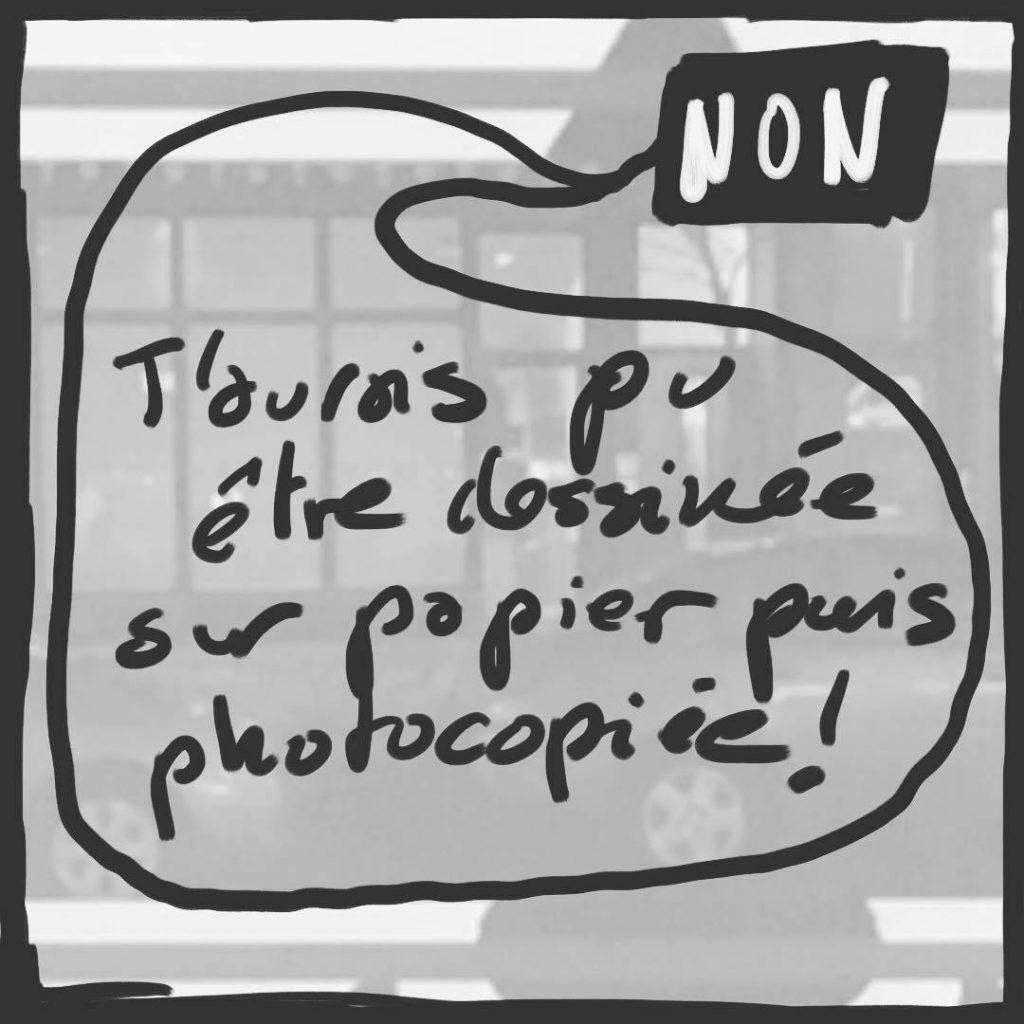 NON
T'aurais pu
être dessinée
sur papier puis
photocopiée!